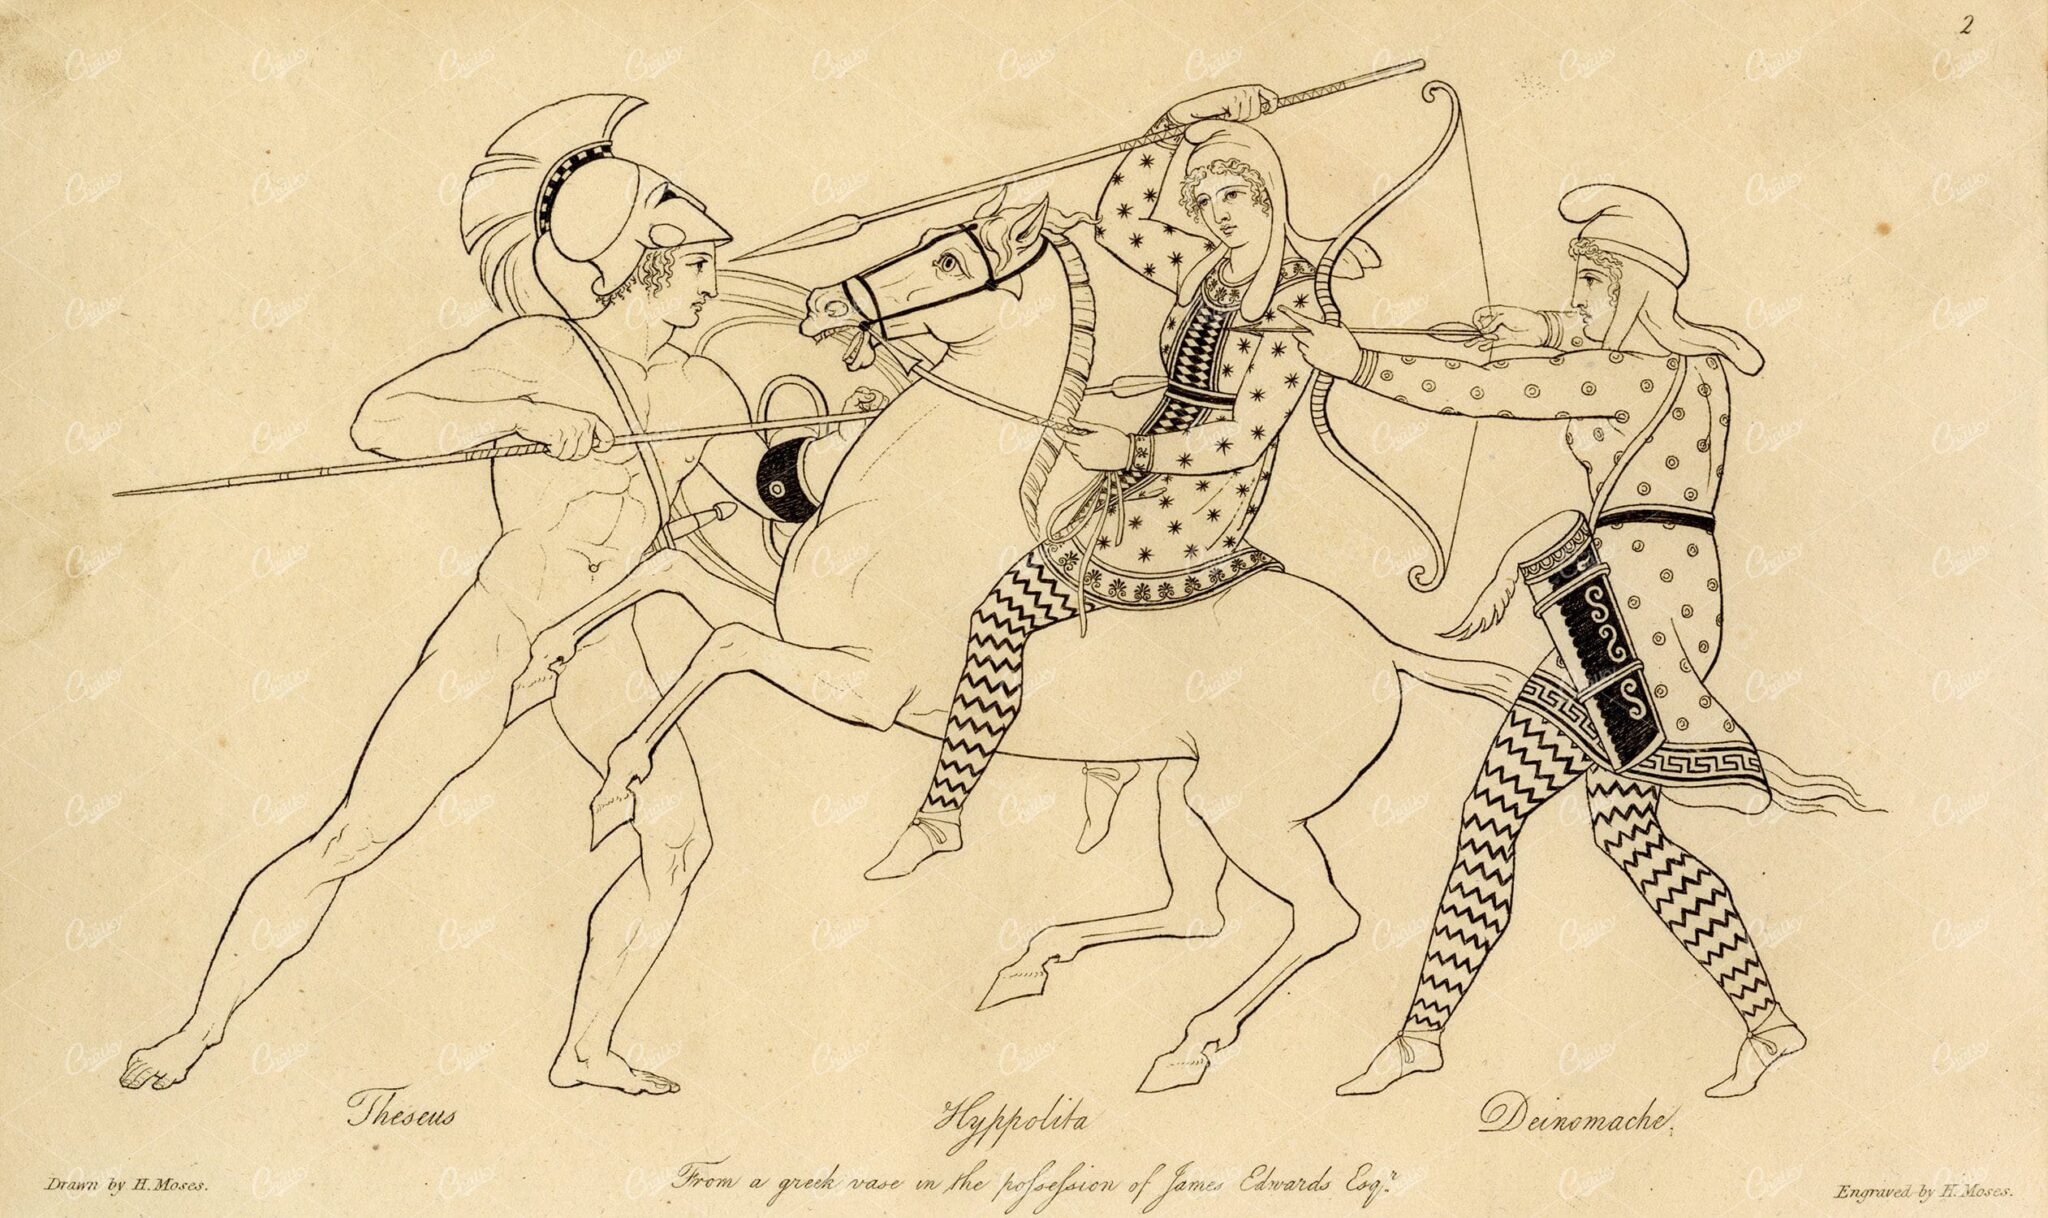 2
Theseus
Hyppolita
Deinomache.
Drawn by H. Moses.
From a greek vase in the poſseſsion of James Edwards Esqr.
Engraved by H. Moses.